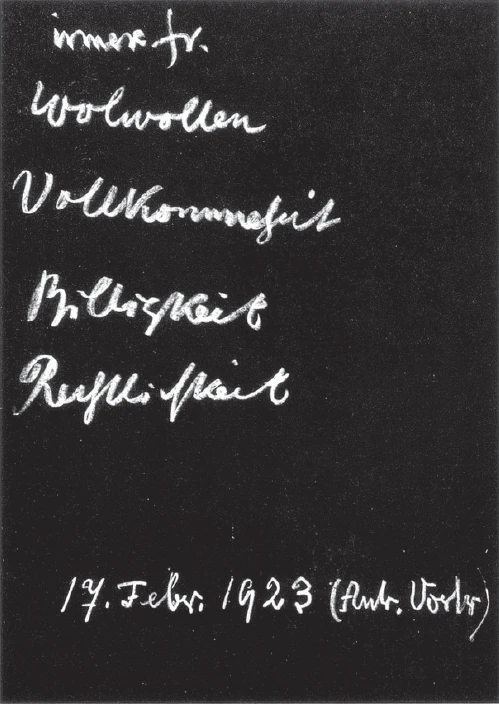 innere Fr.
Wolwollen
Vollkommenheit
Billigkeit
Rechtlichkeit
17. Febr. 1923 (Vortr)